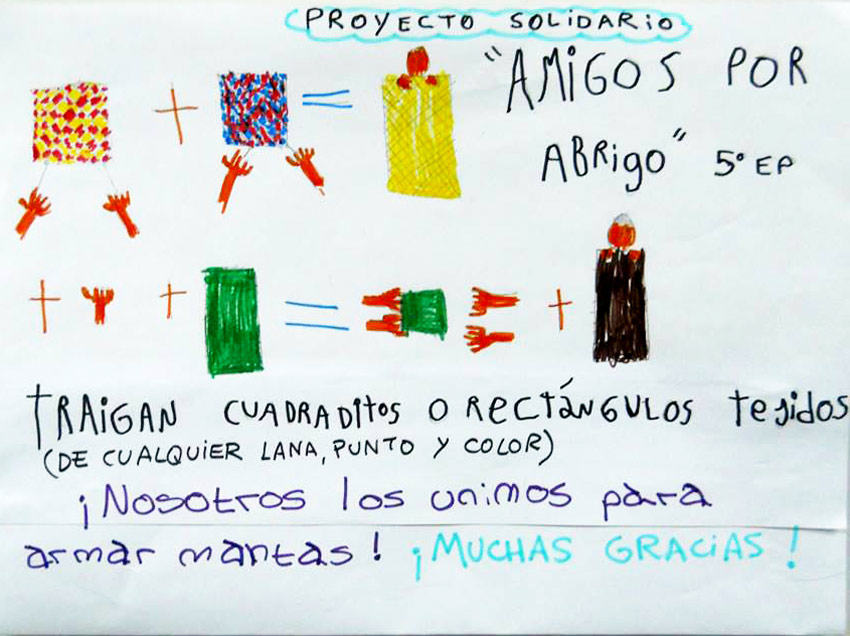 PROYECTO SOLIDARIO
"AMIGOS POR
ABRIGO" 5° EP
TRAIGAN CUADRADITOS O RECTÁNGULOS TEJIDOS
(DE CUALQUIER LANA, PUNTO Y COLOR)
¡Nosotros los unimos para
armar mantas! ¡MUCHAS GRACIAS!